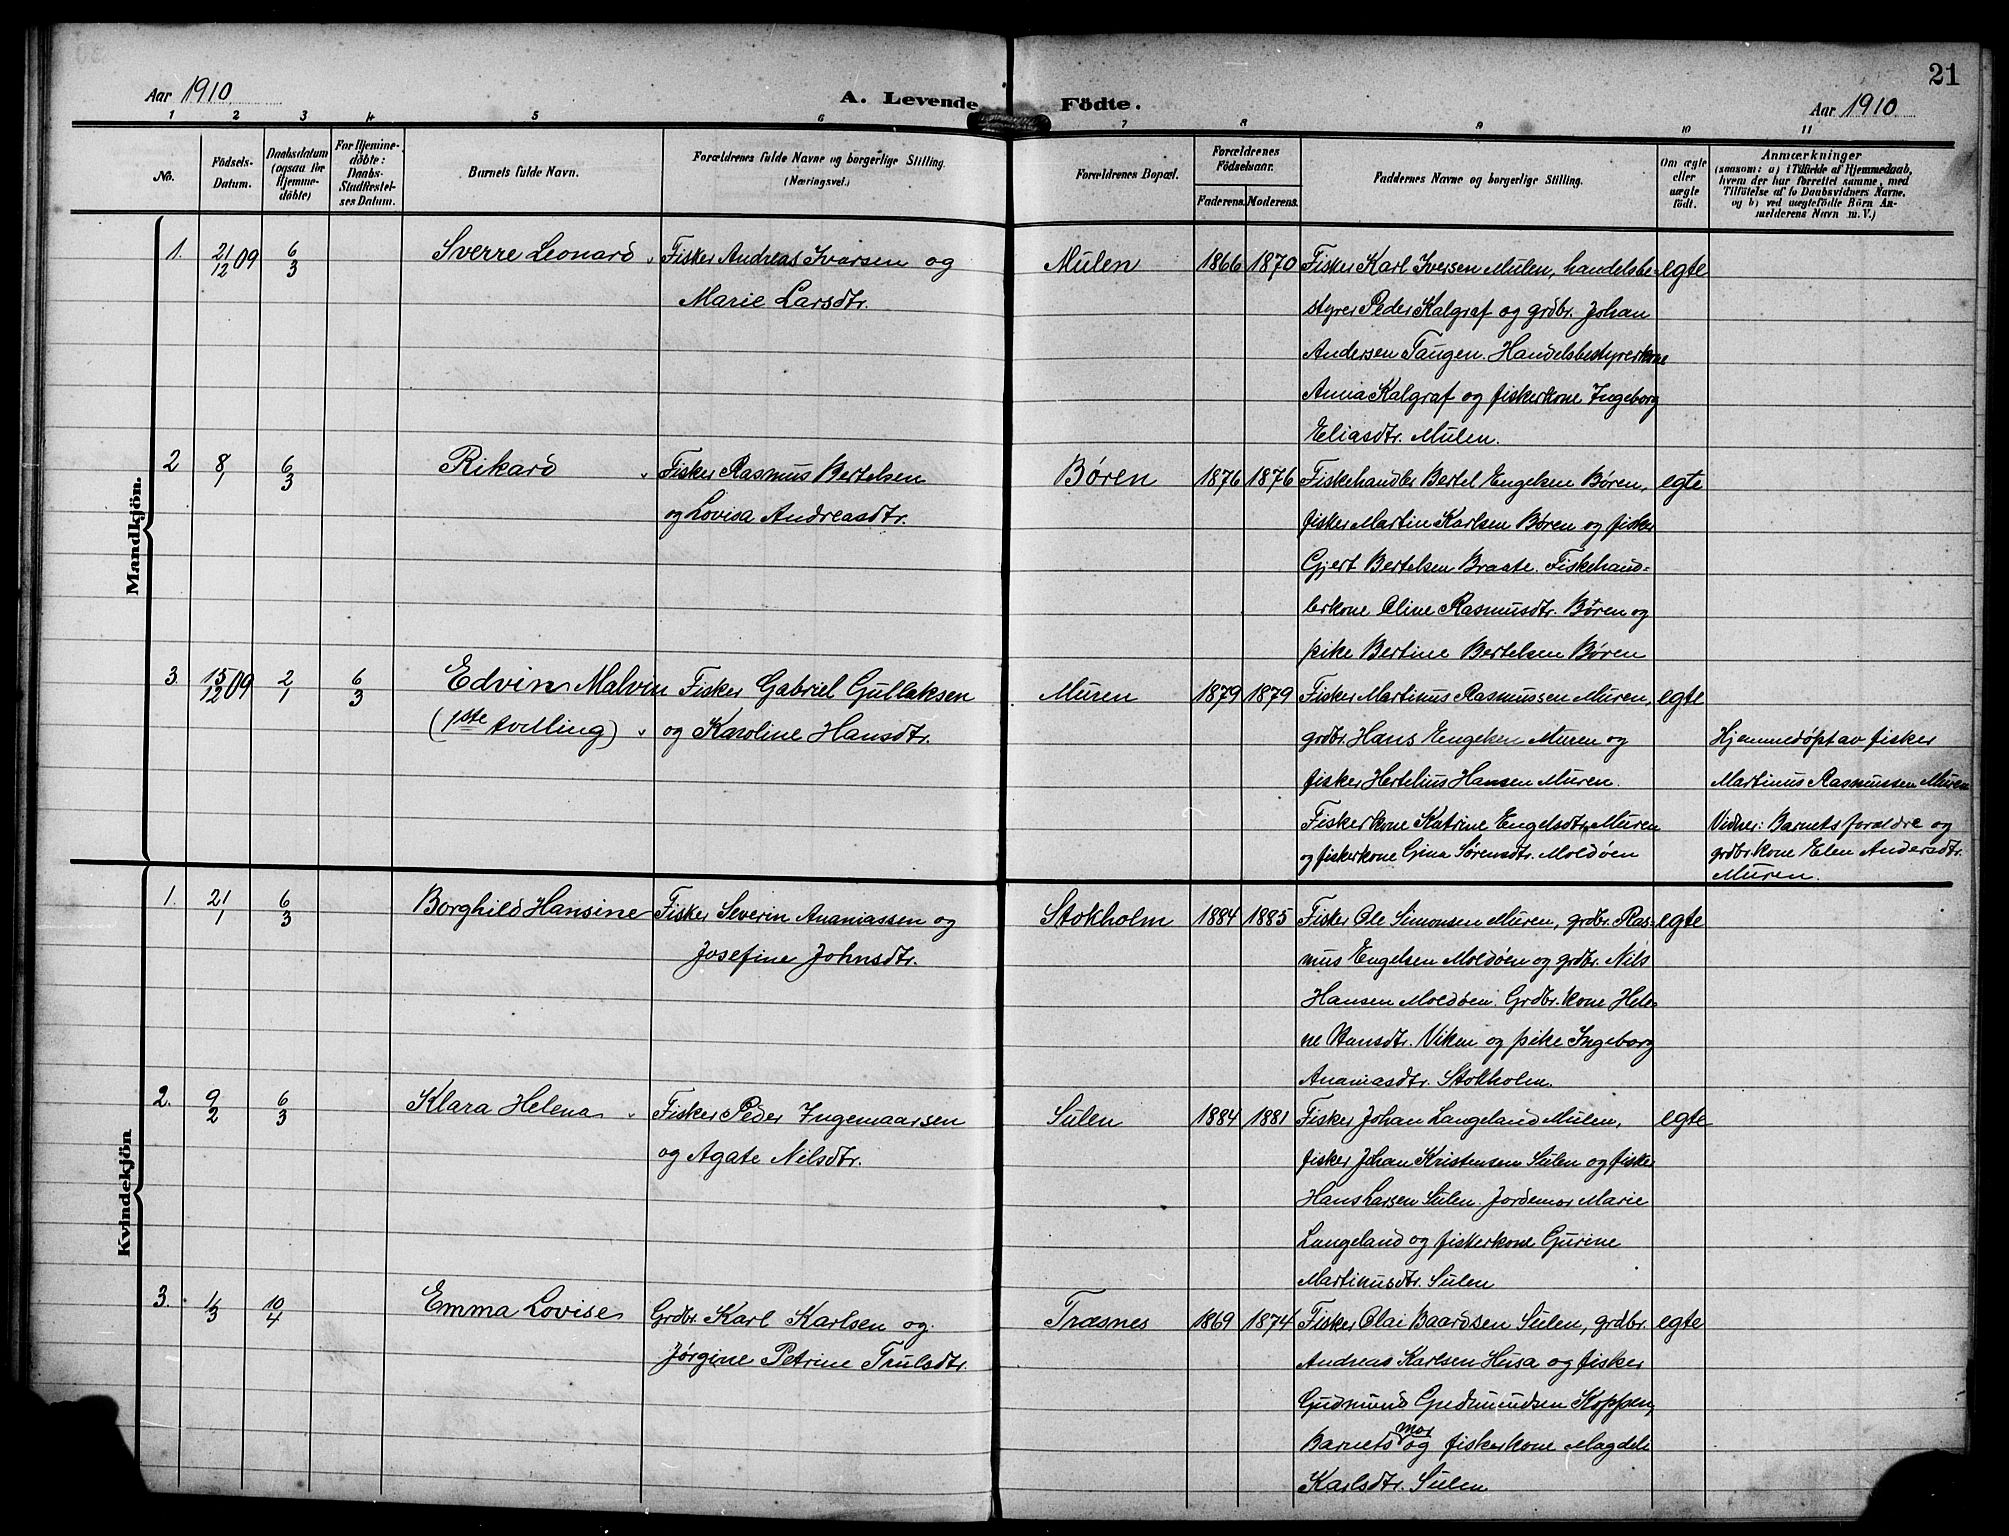 21
Aar 1910
A. Levende Födte.
Aar 1910
1 2 3 4 5 6 7 8 9 10 11
No.
Födsels-Datum.
Daabsdatum (ogsaa for Hjemme-döbte)
For Hjemme-döbte: Daabs-Stadfæstel-ses Datum.
Barnets fulde Navn.
Forældrenes fulde Navne og borgerlige Stilling.
(Næringsvei.)
Forældrenes Bopæl.
Forældrenes Födselsaar.
Faderens. Moderens.
Faddernes Navne og borgerlige Stilling.
Om ægte eller uægte födt.
Anmærkninger
(saasom: a) i Tilfælde af Hjemmedaab,
hvem der har forrettet samme, med
Tilföielse af to Daabsvidners Navne,
og b) ved uægtefödte Börn An-
melderens Navn m. V.)
Mandkjön.
1. 21/12 09 6/3 Sverre Leonard Fisker Andreas Ivarsen og Mulen 1866 1870 Fisker Karl Iversen Mulen, handelsbe- egte
Marie Larsdtr. styrer Peder Kalgraf og grdbr. Johan
Andersen Taugen. Handelsbestyrerkone
Anna Kalgraf og fiskerkone Ingeborg
Eliasdtr. Mulen.
2 8/1 6/3 Rikard Fisker Rasmus Bertelsen Børen 1876 1876 Fiskehandler Bertel Engelsen Børen, egte
og Lovisa Andreasdtr. fisker Martin Karlsen Børen og fisker
Gjert Bertelsen Braate. Fiskehand-
lerkone Oline Rasmusdtr. Børen og
pike Bertine Bertelsen Børen
3. 15/12 09 2/1 6/3 Edvin Malvin Fisker Gabriel Gullaksen Muren 1879 1879 Fisker Martinus Rasmussen Muren, egte
(1ste tvilling) og Karoline Hansdtr. grdbr. Hans Engelsen Muren og Hjemmedøpt av fisker
fisker Hertelius Hansen Muren. Martinus Rasmussen Muren
Fiskerkone Katrine Engelsdtr. Muren Vidner: Barnets foreldre og
og fiskerkone Gina Sørensdtr. Moldøen grdbr.kone Elen Andersdtr.
Muren.
Kvindekjön
1. 21/1 6/3 Borghild Hansine Fisker Severin Ananiassen og Stokholm 1884 1885 Fisker Ole Simonsen Muren, grdbr. Ras- egte
Josefine Johnsdtr. mus Engelsen Moldøen og grdbr. Nils
Hansen Moldøen. Grdbr. kone Hele-
ne Hansdtr. Viken og pike Ingeborg
Ananiasdtr. Stokholm.
2. 9/2 6/3 Klara Helena Fisker Peder Ingemaarsen Sulen 1884 1881 Fisker Johan Langeland Mulen, egte
og Agate Nilsdtr. fisker Johan Kristensen Sulen og fisker
Hans Larsen Sulen. Jordemor Marie
Langeland og fiskerkone Gurine
Martinusdtr. Sulen
3. 1/3 10/4 Emma Lovise Grdbr. Karl Karlsen og Træsnes 1869 1874 Fisker Olai Baardsen Sulen, grdbr. egte
Jørgine Petrine Trulsdtr. Andreas Karlsen Husa og fisker
Gudmund Gudmundsen Koppen,
Barnets mor og fiskerkone Magdeli
Karlsdtr. Sulen